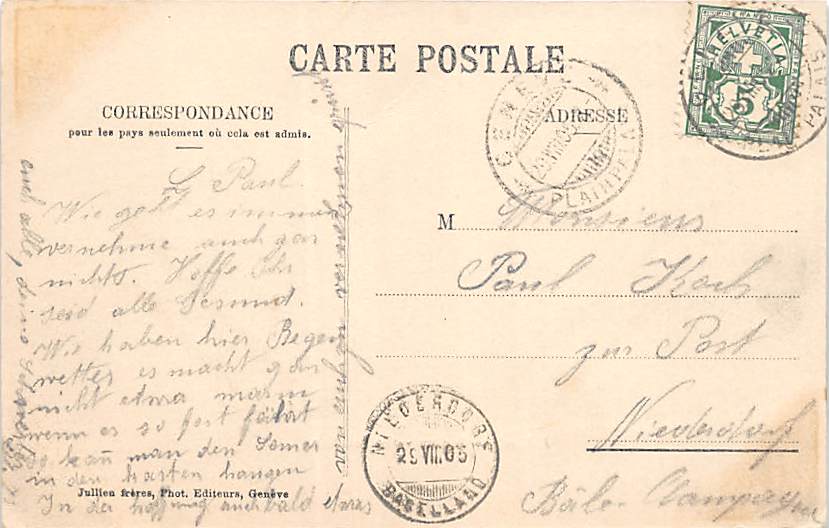 CARTE POSTALE
CORRESPONDANCE
pour les pays seulement où cela est admis.
ADRESSE
HELVETIA
5
GENÈVE
PLAINPALAIS
L. Paul.
Wie geht es immer
vernehme auch gar
nichts. Hoffe Ihr
seid alle Gesund.
Wir haben hier Regen
wetter es macht gar
nicht etwa warm
wenn es so fort fährt
so kan̄ man den Somer
in den
In der Hoffnung auch bald etwas
euch alle, deine
M Monsieur
Paul Koch
zur Post
Niederdorf
NIEDERDORF
29 VII. 05
BASELLAND
Jullien frères, Phot. Editeurs, Genève